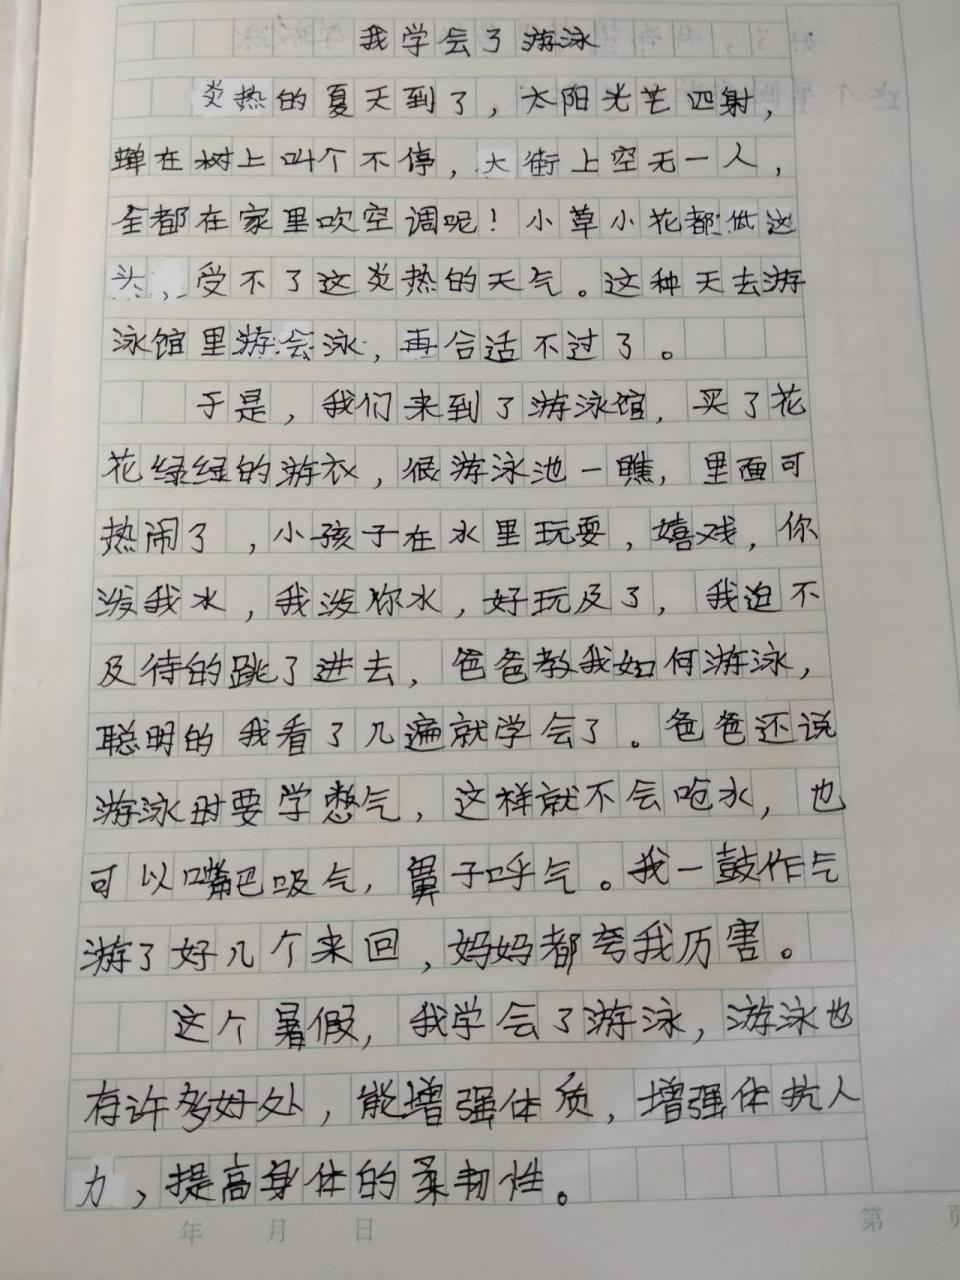 我学会了游泳
炎热的夏天到了，太阳光芒四射，
蝉在树上叫个不停，大街上空无一人，
全都在家里吹空调呢！小草小花都低这
头，受不了这炎热的天气。这种天去游
泳馆里游会泳，再合适不过了。
于是，我们来到了游泳馆，买了花
花绿绿的游衣，很游泳池一瞧，里面可
热闹了，小孩子在水里玩耍，嬉戏，你
泼我水，我泼你水，好玩及了，我迫不
及待的跳了进去，爸爸教我如何游泳，
聪明的我看了几遍就学会了。爸爸还说
游泳时要学憋气，这样就不会呛水，也
可以嘴巴吸气，鼻子呼气。我一鼓作气
游了好几个来回，妈妈都夸我厉害。
这个暑假，我学会了游泳，游泳也
有许多好处，能增强体质，增强体抗人
力，提高身体的柔韧性。
年 月 日
第 页